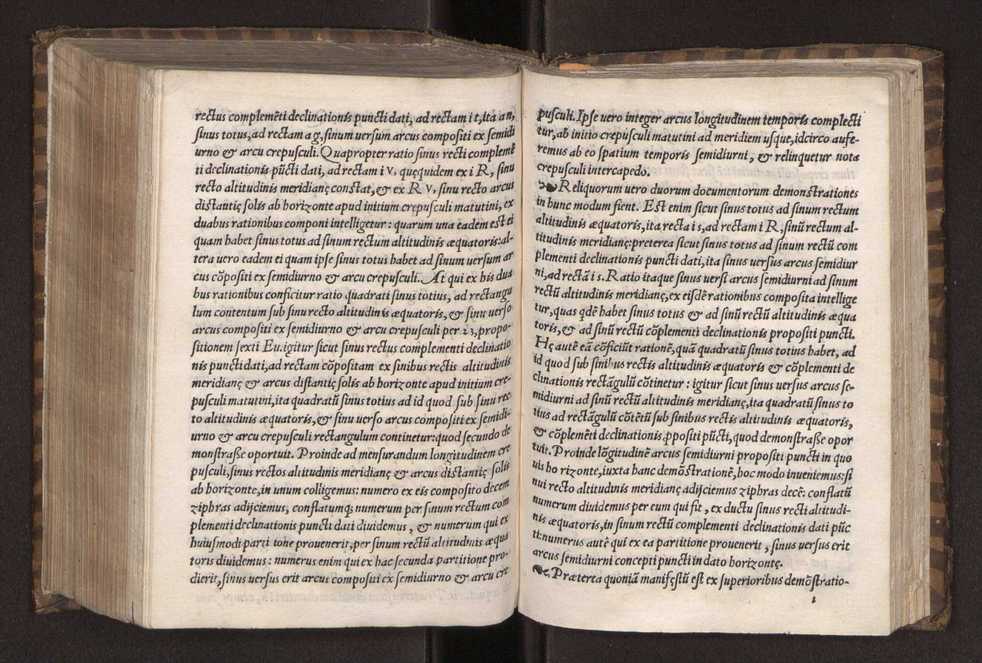 rectus complemēti declinationis puncti dati, ad rectam i t, ita a n,
sinus totus, ad rectam a g, sinum versum arcus compositi ex semidi
urno & arcu crepusculi. Quapropter ratio sinus recti complemē
ti declinationis pūcti dati, ad rectam i v. quęquidem ex i R, sinu
recto altitudinis meridianę constat, & ex R v. sinu recto arcus
distātię solis ab horizonte apud initium crepusculi matutini, ex
duabus rationibus componi intelligetur: quarum una eadem est ei
quam habet sinus totus ad sinum rectum altitudinis æquatoris: al-
tera vero eadem ei quam ipse sinus totus habet ad sinum versum ar
cus cōpositi ex semidiurno & arcu crepusculi. At qui ex his dua
bus rationibus conficitur ratio quadrati sinus totius, ad rectangu
lum contentum sub sinu recto altitudinis æquatoris, & sinu verso
arcus compositi ex semidiurno & arcu crepusculi per 23, propo-
sitionem sexti Eu. igitur sicut sinus rectus complementi declinatio
nis puncti dati, ad rectam cōpositam ex sinibus rectis altitudinis
meridianę & arcus distantię solis ab horizonte apud initium cre-
pusculi matutini, ita quadratū sinus totius ad id quod sub sinu rec-
to altitudinis æquatoris, & sinu verso arcus compositi ex semidi-
urno & arcu crepusculi rectangulum continetur: quod secundo de
monstrasse oportuit. Proinde ad mensurandum longitudinem cre
pusculi, sinus rectos altitudinis meridianę & arcus distantię solis
ab horizonte, in unum colligemus: numero ex eis composito decem
ziphras adijciemus, conflatumq; numerum per sinum rectum com
plementi declinationis puncti dati diuidemus, & numerum qui ex
huiusmodi parti tone prouenerit, per sinum rectū altitudinis æqua
toris diuidemus: numerus enim qui ex hac secunda partitione pro-
dierit, sinus versus erit arcus compositi ex semidiurno & arcu cre
pusculi. Ipse uero integer arcus longitudinem temporis complecti
tur, ab initio crepusculi matutini ad meridiem usque, idcirco aufe-
remus ab eo spatium temporis semidiurni, & relinquetur nota
crepusculi intercapedo.
Reliquorum uero duorum documentorum demonstrationes
in hunc modum fient. Est enim sicut sinus totus ad sinum rectum
altitudinis æquatoris, ita recta i s, ad rectam i R, sinū rectum al-
titudinis meridianę: preterea sicut sinus totus ad sinum rectū com
plementi declinationis puncti dati, ita sinus versus arcus semidiur
ni, ad rectā i s. Ratio itaque sinus versi arcus semidiurni ad sinum
rectū altitudinis meridianę, ex eisdē rationibus composita intellige
tur, quas qdē habet sinus totus & ad sinū rectū altitudinis æqua
toris, & ad sinū rectū cōplementi declinationis propositi puncti.
Hę autē eā cōficiūt rationē, quā quadratū sinus totius habet, ad
id quod sub sinibus rectis altitudinis æquatoris & cōplementi de
clinationis rectāgulū cōtinetur: igitur sicut sinus versus arcus se-
midiurni ad sinū rectū altitudinis meridianę, ita quadratū sinus to
tius ad rectāgulū cōtētū sub sinibus rectis altitudinis æquatoris,
& cōplemēti declinationis ,ppositi pūcti, quod demonstrasse opor
tuit. Proinde lōgitudinē arcus semidiurni propositi puncti in quo
uis ho rizonte, iuxta hanc demōstrationē, hoc modo inueniemus: si
nui recto altitudinis meridianę adijciemus ziphras decē: conflatū
numerum diuidemus per eum qui fit, ex ductu sinus recti altitudi-
nis æquatoris, in sinum rectū complementi declinationis dati pūc
ti: numerus autē qui ex ea partitione prouenerit, sinus versus erit
arcus semidiurni concepti puncti in dato horizontę.
Præterea quoniā manifestū est ex superioribus demōstratio-
1